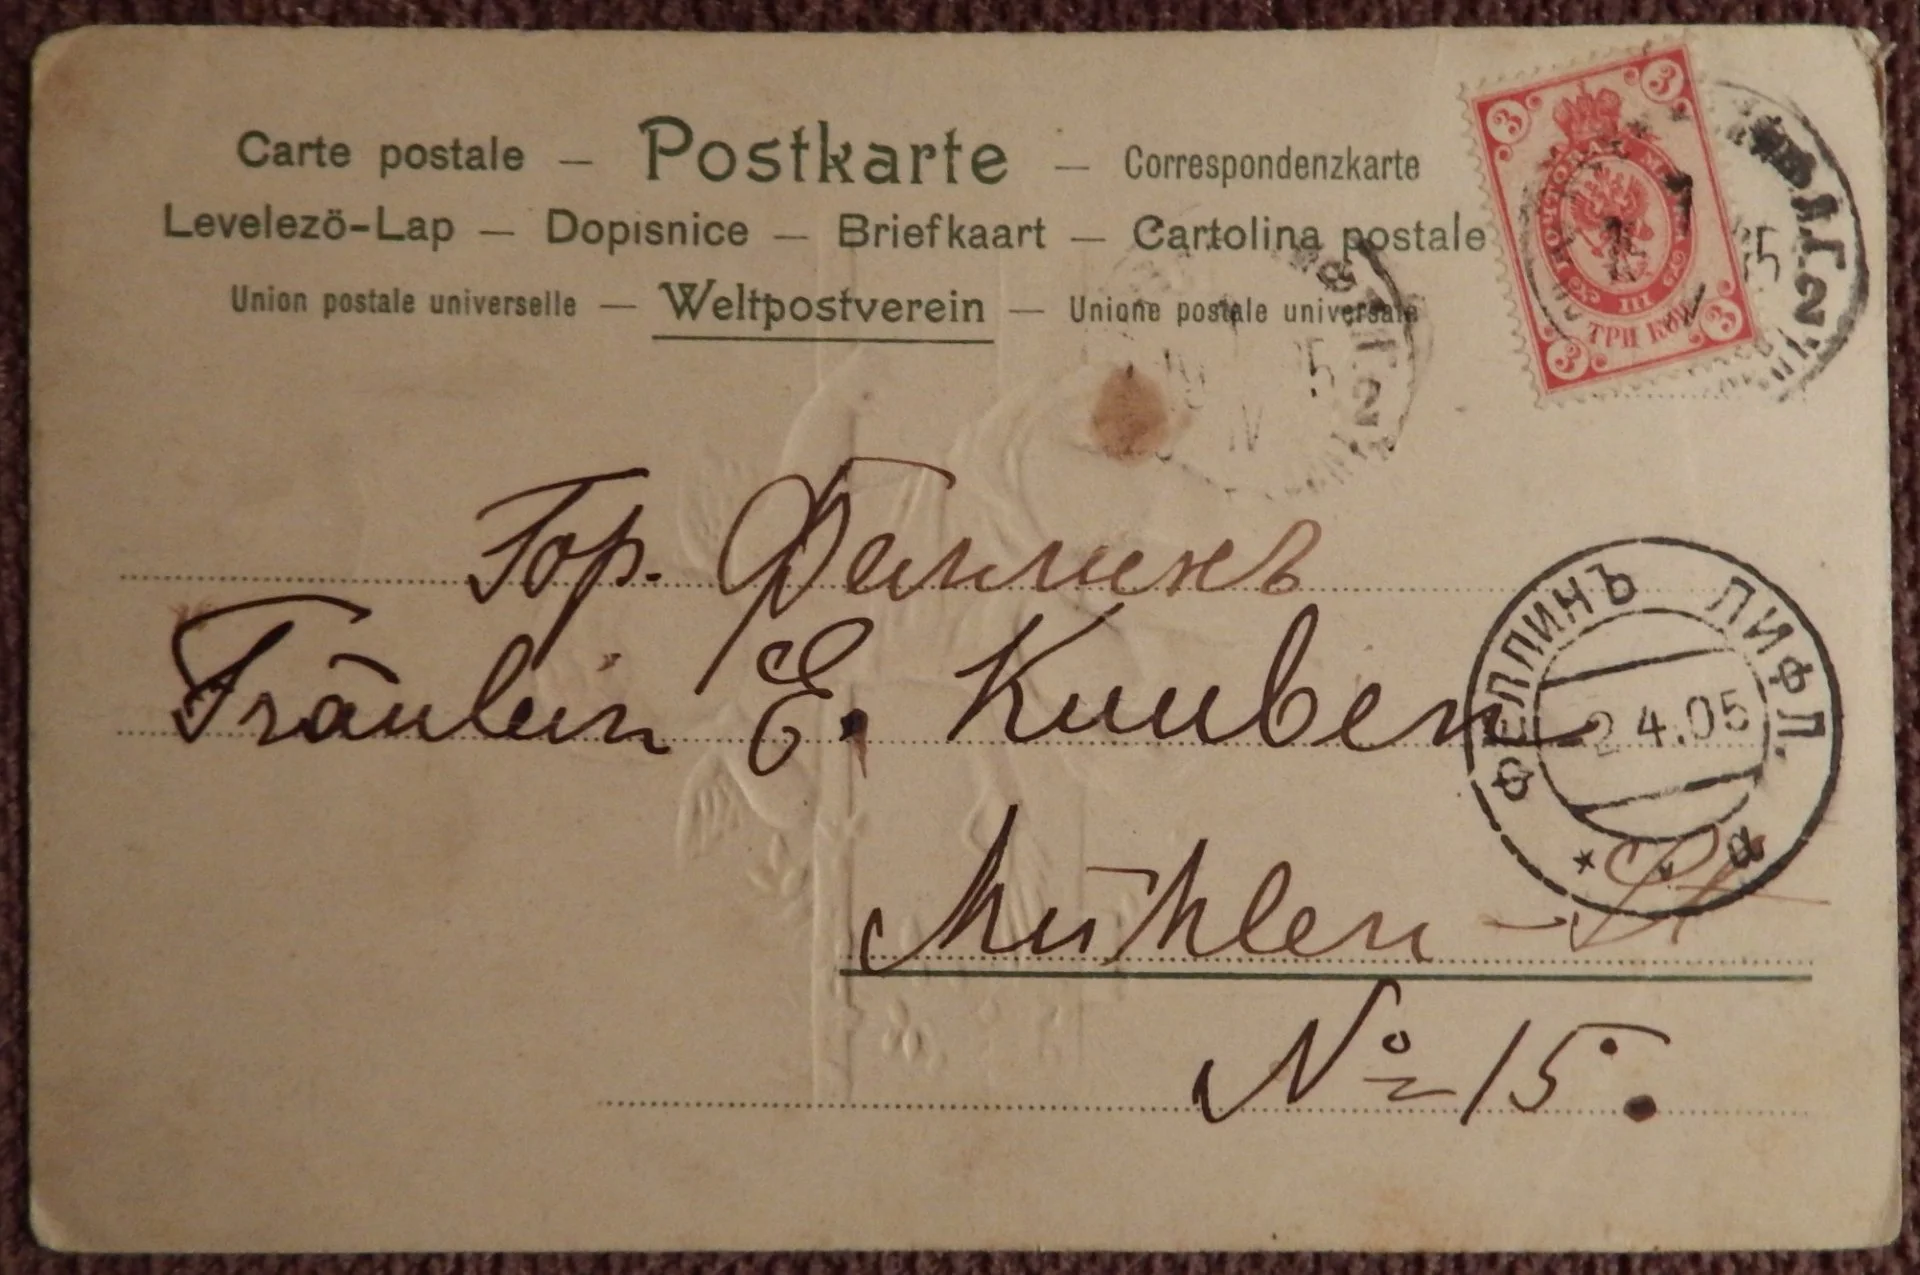 Carte postale — Postkarte — Correspondenzkarte
Levelező-Lap — Dopisnice — Briefkaart — Cartolina postale
Union postale universelle — Weltpostverein — Unione postale universale
3 3
ТРИ КОП
3 3
Гор. Феллинъ
Fräulein E. Knuben
ФЕЛЛИНЪ ЛИФЛ.
2 4.05
* a
Mühlen - St
№ 15.